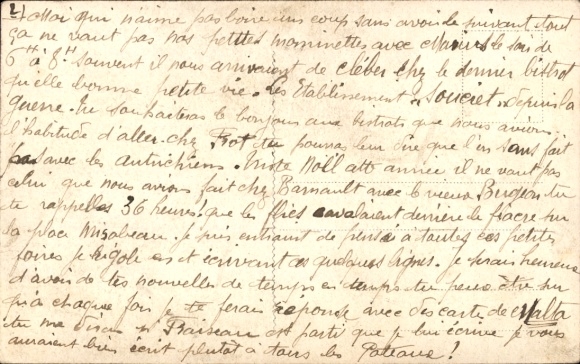 2) Moi qui n'aime pas boire un coup sans avoir le suivant tout
ça ne vaut pas nos petites mominettes avec Marius le soir de
6H à 8H souvent il nous arrivaient de cléber chez le dernier bistrot
qu'elle bonne petite vie. Les Etablissement "Souciet" depuis la
guerre. Tu souhaiteras le bonjour aux bistrots que nous avions
l'habitude d'aller chez Prot tu pourras leur dire que l'on s'en fait
pas avec les autrichiens. Triste Noël cette année il ne vaut pas
celui que nous avions fait chez Barnault avec le vieux Burgeon tu
te rappelles 36 heures! que les flics cavalaient derrière le fiacre sur
la place Mirabeau. Je suis entraint de pensé à toutes ces petites
foires je rigole en écrivant ces quelques lignes. Je serais heureux
d'avoir de tes nouvelles de temps en temps tu peux être sur
qu'a chaque fois je te ferais réponse avec des carte de Malta
tu me diras si Parseau est parti que je lui écrive je vous
auraient bien écrit plutôt à tous les Poteaux!